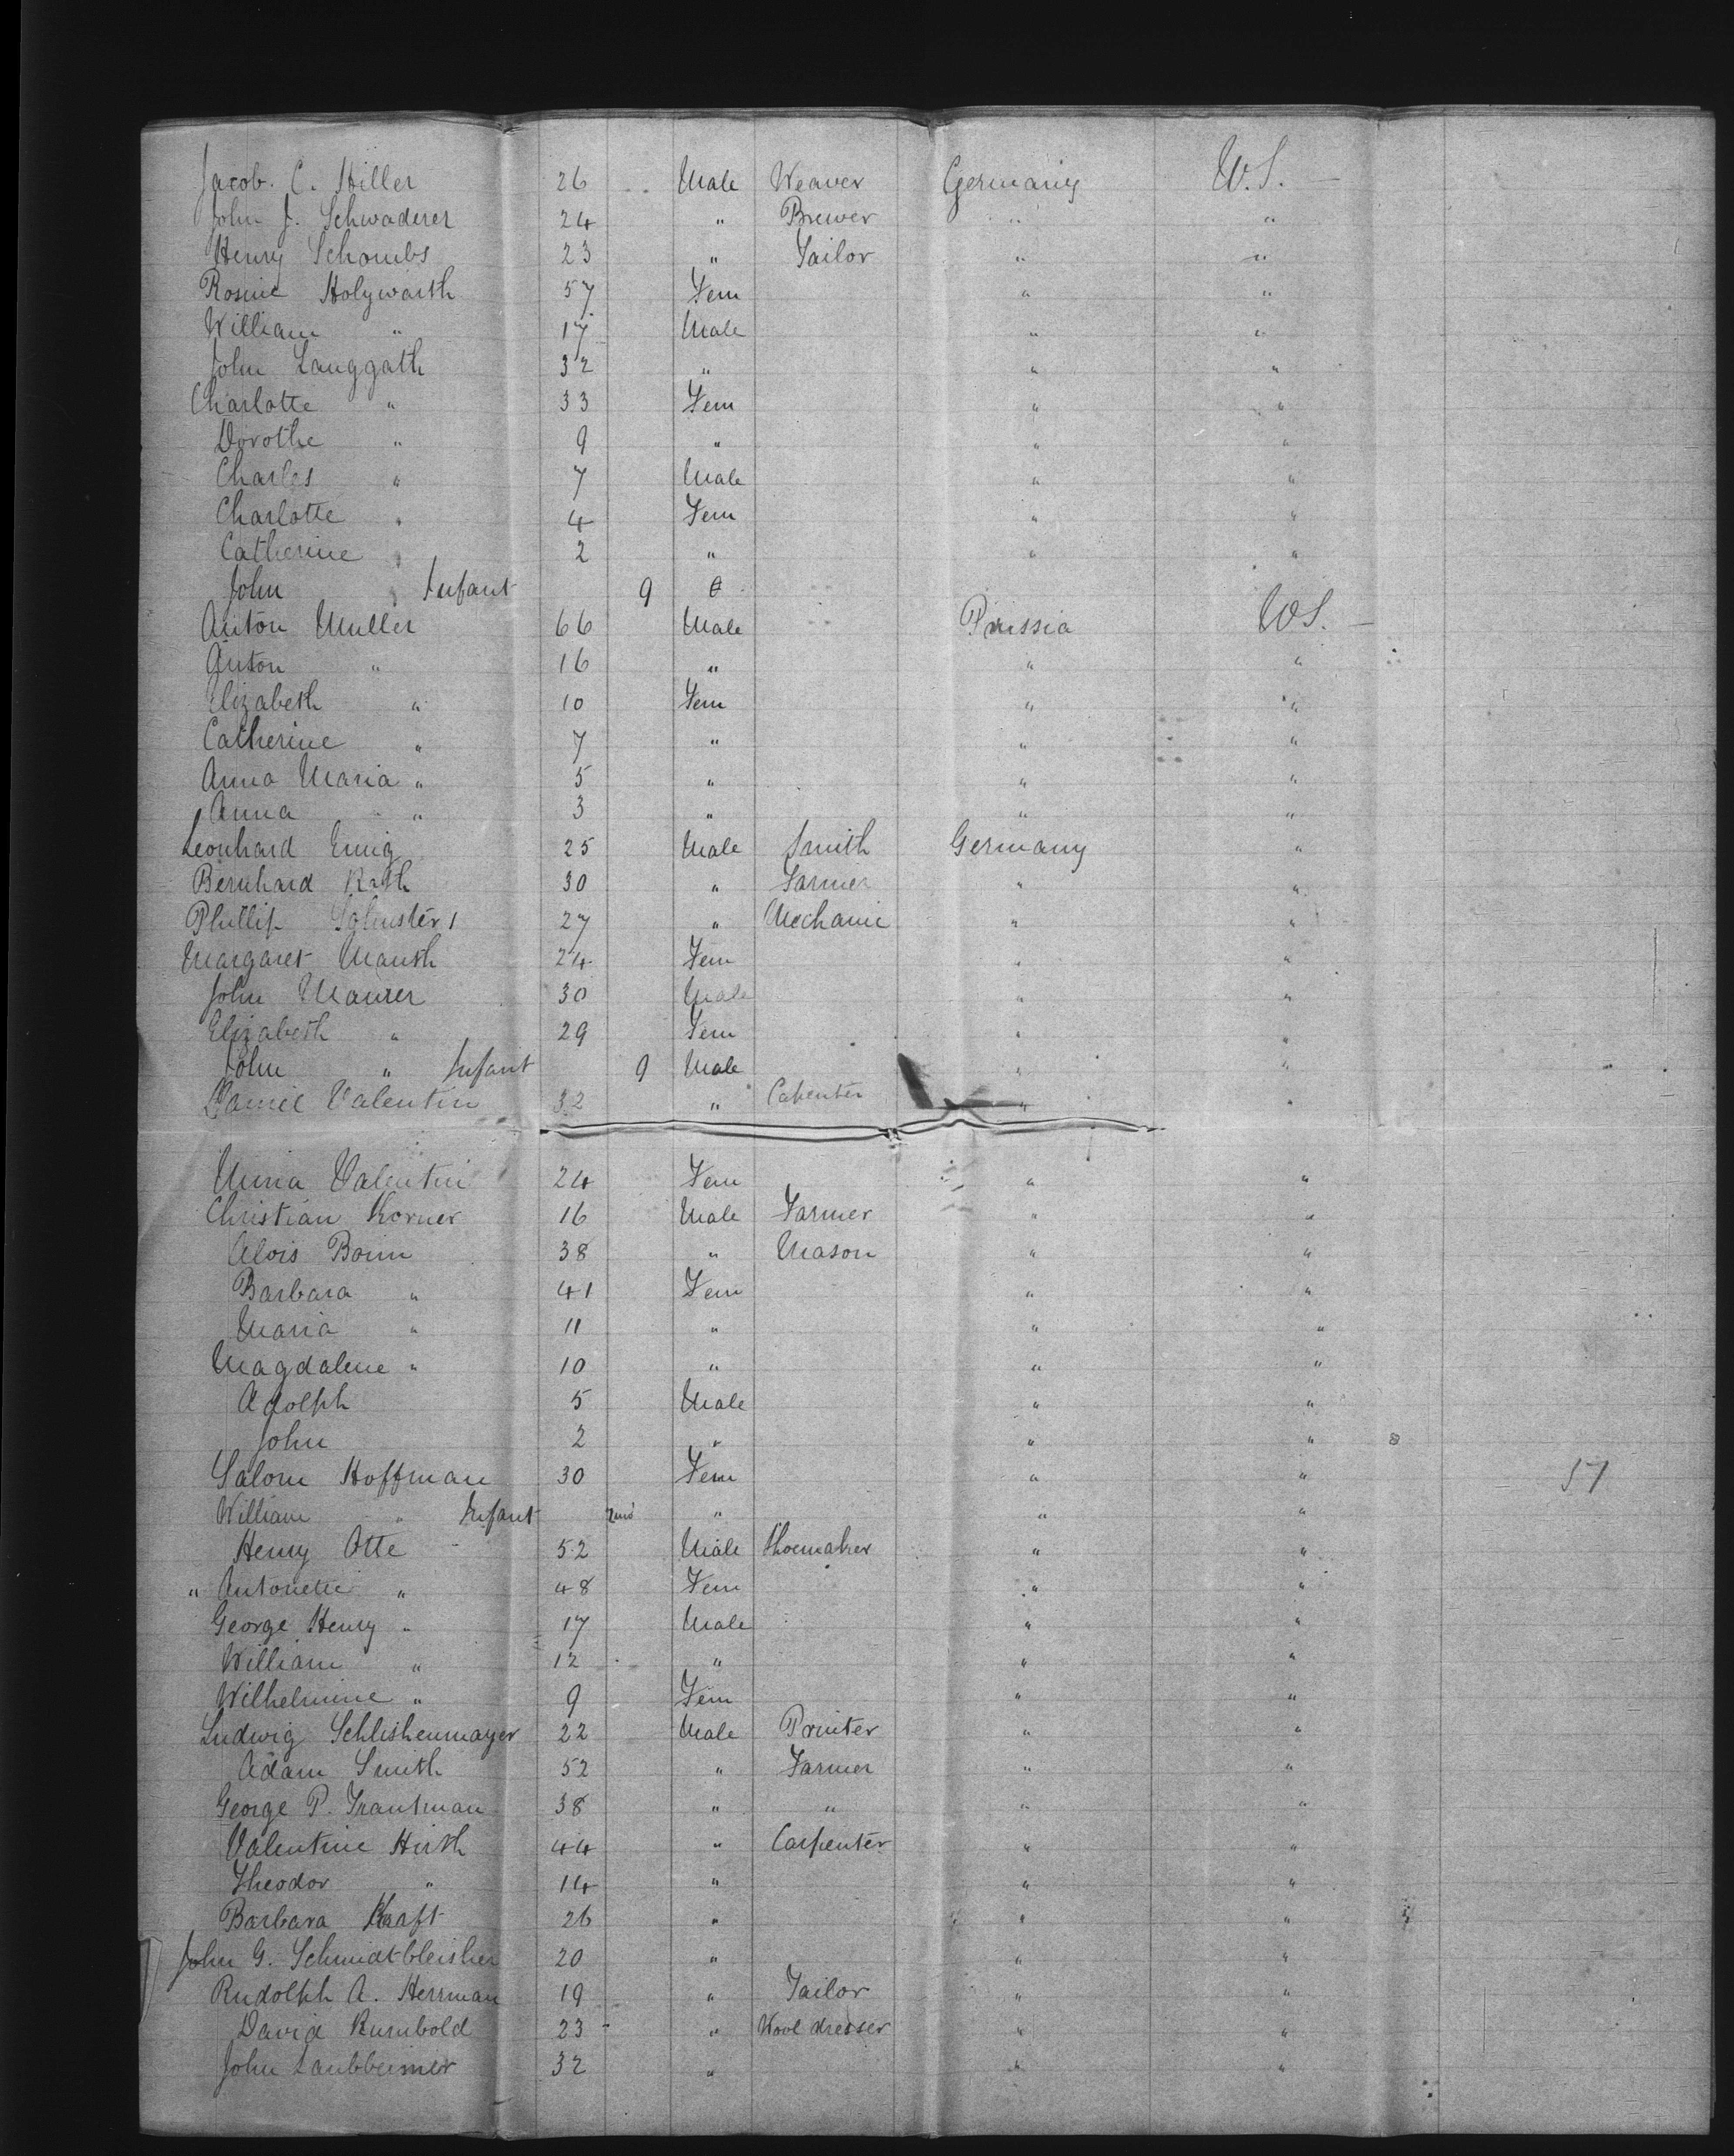 Jacob. C. Hiller 26 Male Weaver Germany U.S.
John J. Schwaderer 24 " Brewer " "
Henry Schombs 23 " Tailor " "
Rosine Holywarth 57 Fem " "
William " 17 Male " "
John Langgath 32 " " "
Charlotte " 33 Fem " "
Dorothe " 9 " " "
Charles " 7 Male " "
Charlotte " 4 Fem " "
Catherine " 2 " " "
John " Infant 9
Anton Muller 66 Male Prussia U.S.
Anton " 16 " " "
Elizabeth " 10 Fem " "
Catherine " 7 " " "
Anna Maria " 5 " " "
Anna " 3 " " "
Leonhard Emig 25 Male Smith Germany "
Bernhard Rath 30 " Farmer " "
Phillip 27 " Mechanic " "
Margaret 24 Fem " "
John Maurer 30 Male " "
Elizabeth " 29 Fem " "
John " Infant 9 Male " "
Valentin 32 " Capenter " "
Valentin 24 Fem " "
Christian Korner 16 Male Farmer " "
Alois 38 " Mason " "
Barbara " 41 Fem " "
Maria " 11 " " "
Magdalene " 10 " " "
Adolph 5 Male " "
John 2 " " "
Salom Hoffman 30 Fem " " 57
William " Infant 2mo " " "
Henry Otte 52 Male Shoemaker " "
" " 48 Fem " "
George Henry " 17 Male " "
William " 12 " " "
Wilhelmine " 9 Fem " "
Ludwig Schlishenmayer 22 Male Printer " "
Adam Smith 52 " Farmer " "
George P. Trautman 38 " " " "
Valentine Hirth 44 " Carpenter " "
Theodor " 14 " " "
Barbara Kraft 26 " " "
John G. 20 " " "
Rudolph A. Herrman 19 " Tailor " "
David Rumbold 23 " Wool dresser " "
John 32 " " "